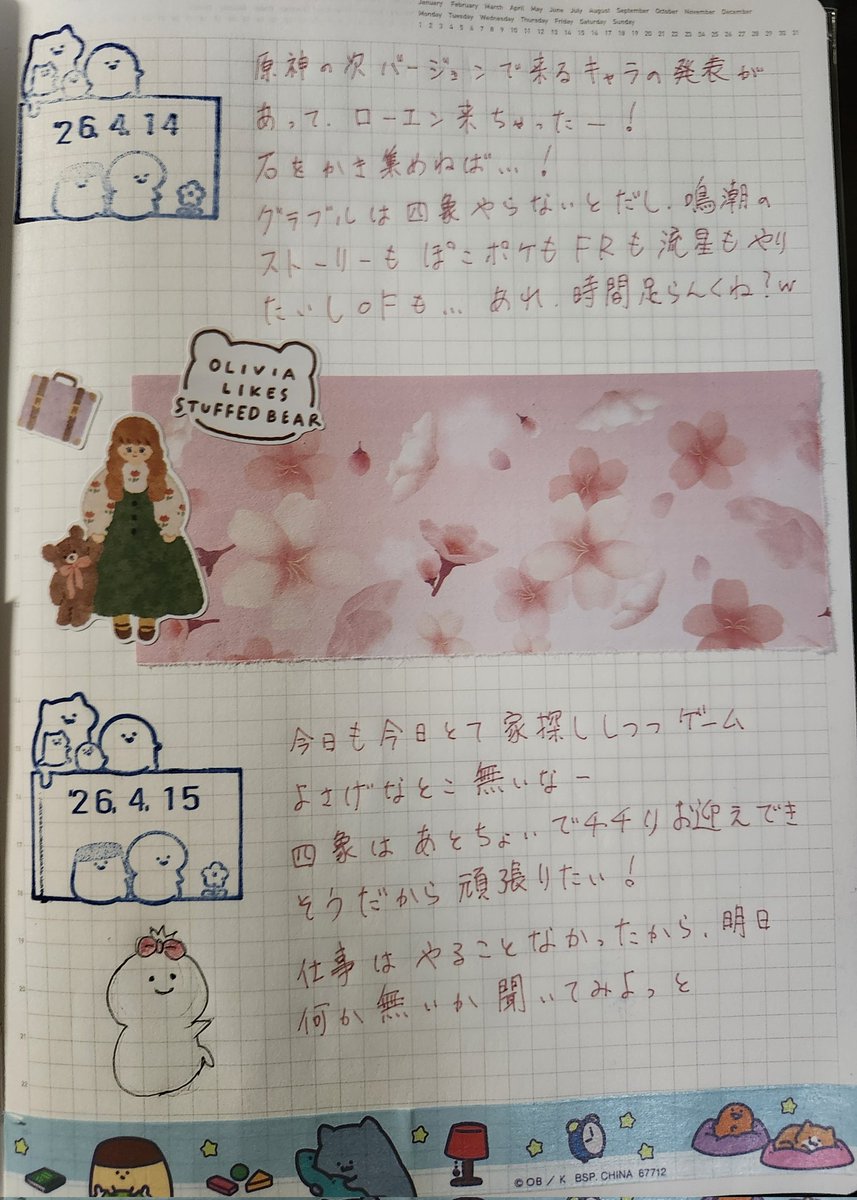 January February March April May June July August September October November December
Monday Tuesday Wednesday Thursday Friday Saturday Sunday
1 2 3 4 5 6 7 8 9 10 11 12 13 14 15 16 17 18 19 20 21 22 23 24 25 26 27 28 29 30 31
'26.4.14
原神の次バージョンで来るキャラの発表が
あって、ローエン来ちゃったー!
石をかき集めねば…!
グラブルは四象やらないとだし、鳴潮の
ストーリーもぽこポケもFRも流星もやり
たいしOFも… あれ、時間足らんくね?w
OLIVIA
LIKES
STUFFED BEAR
'26.4.15
今日も今日とて家探ししつつゲーム
よさげなとこ無いなー
四象はあとちょいでチチリお迎えでき
そうだから頑張りたい!
仕事はやることなかったから、明日
何か無いか聞いてみよっと
19
20
21
22
© OB / K BSP. CHINA 67712